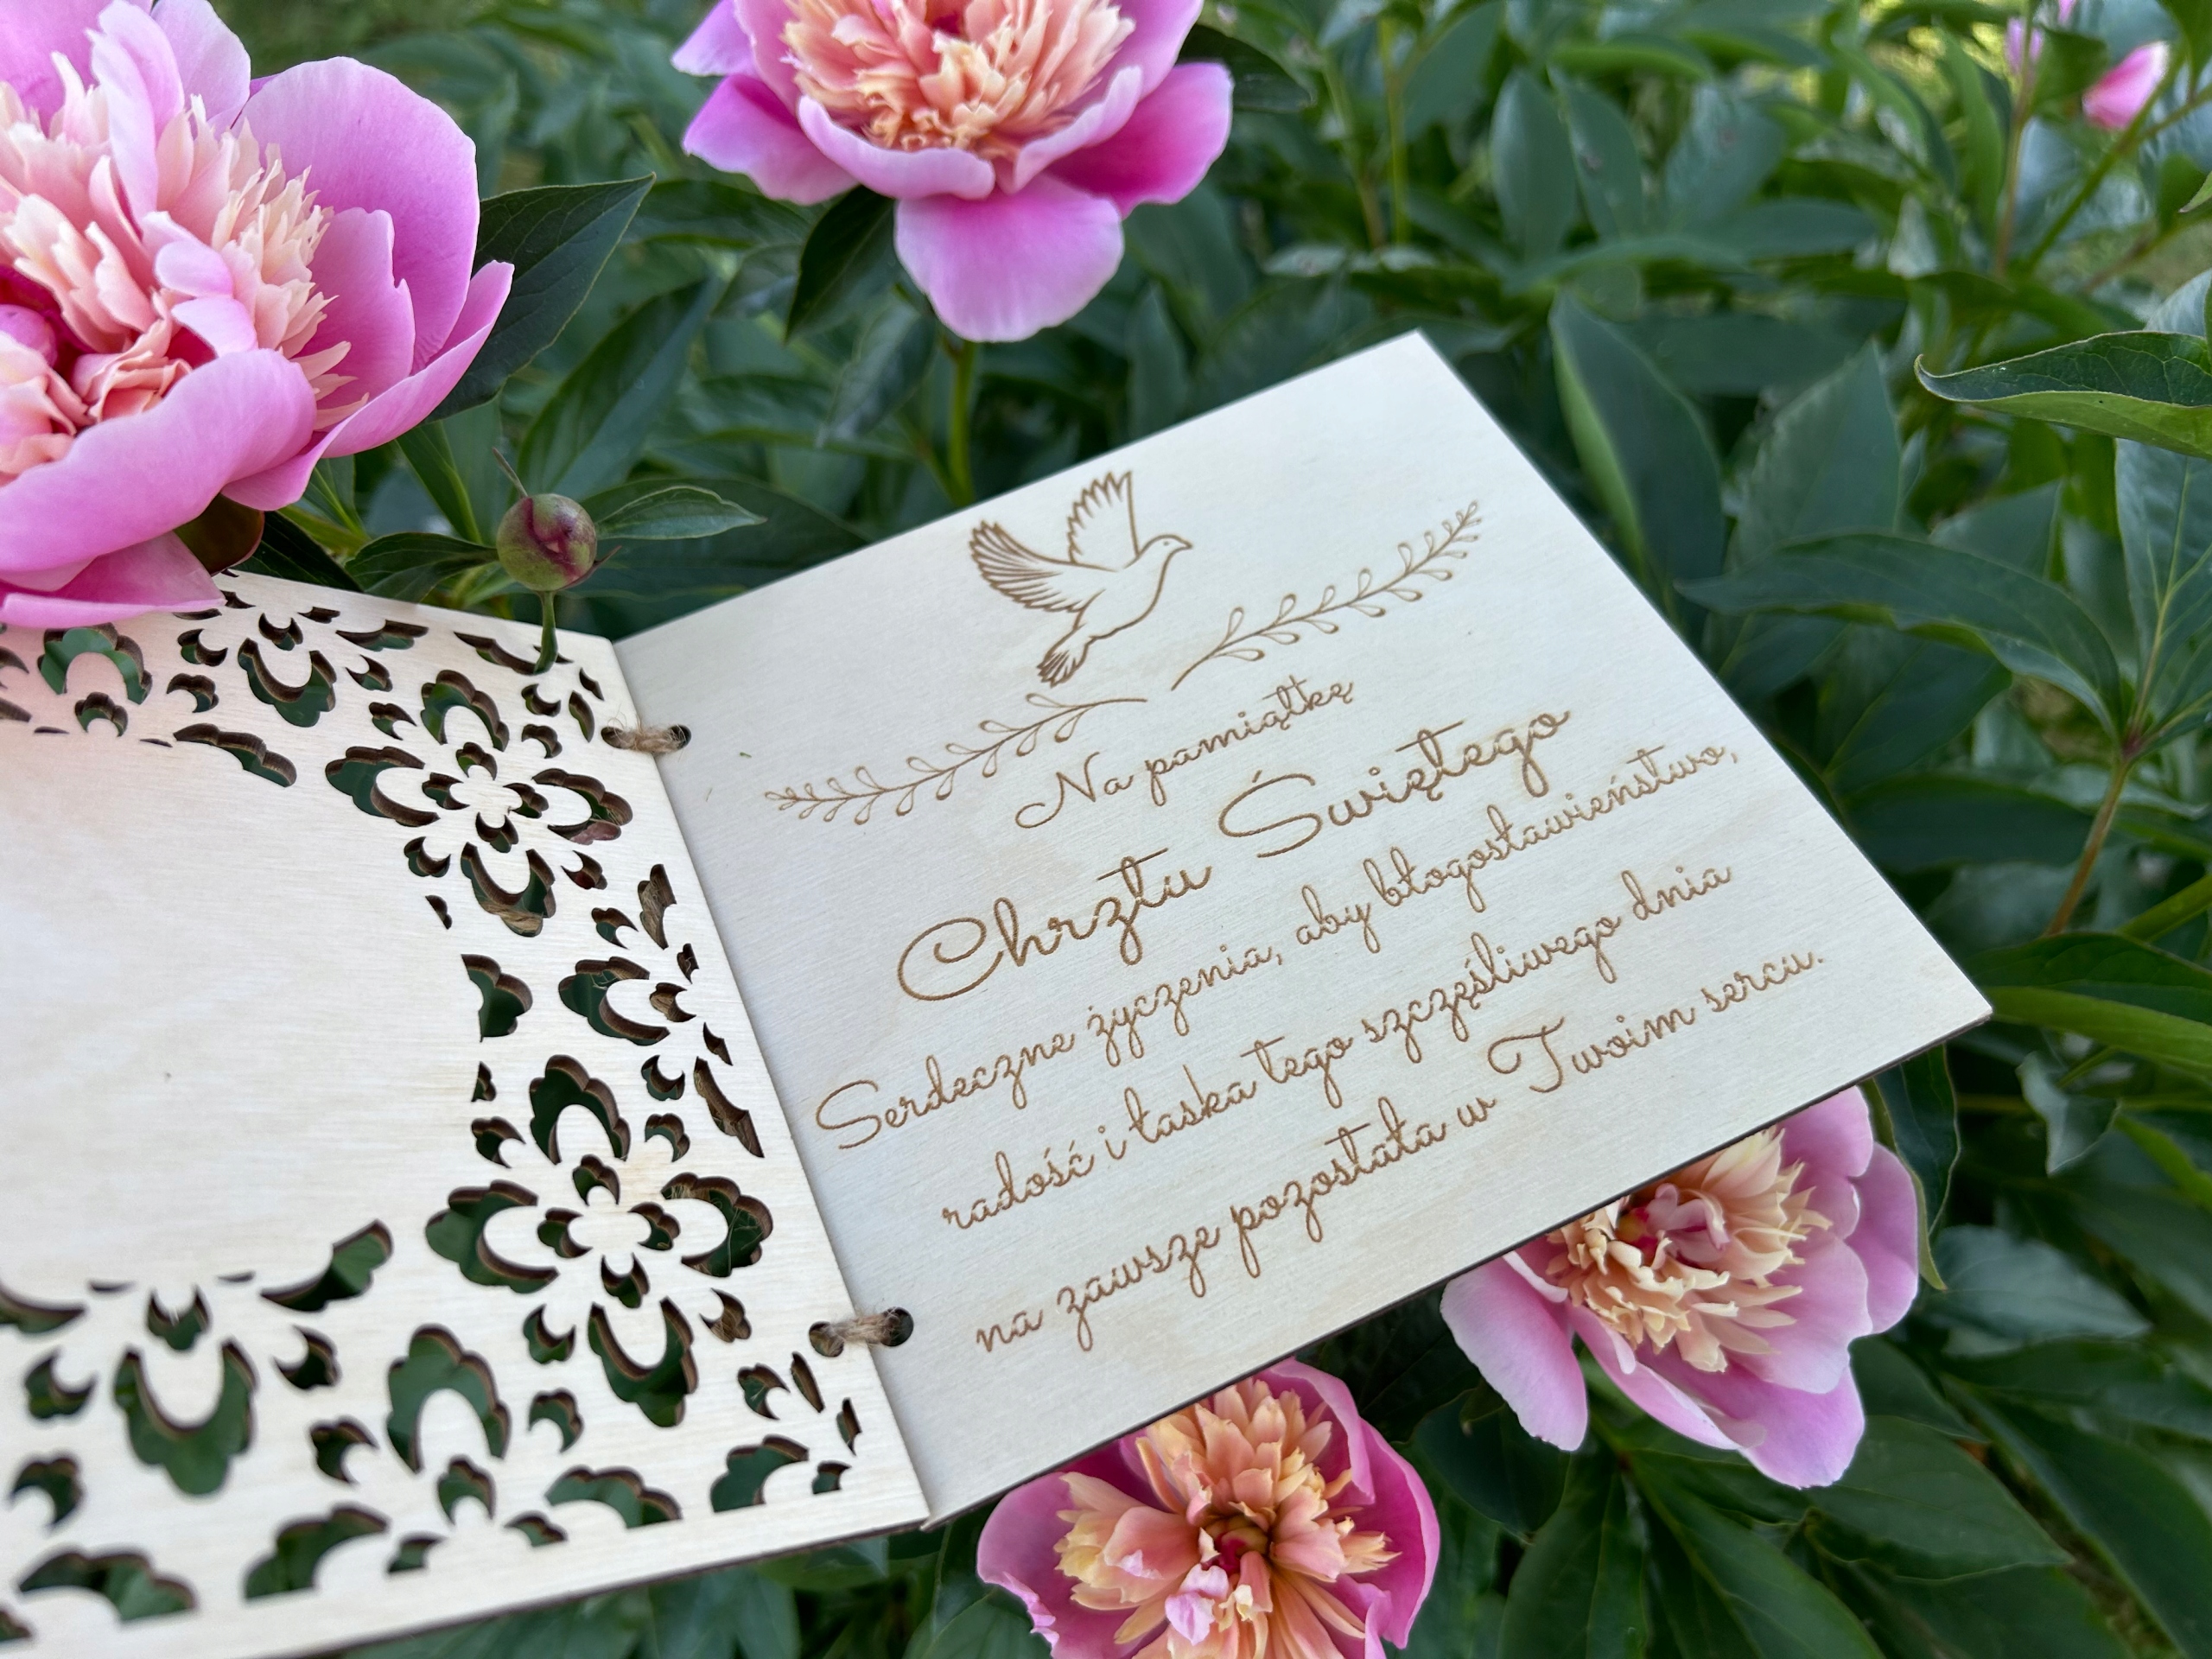 Na pamiątkę
Chrztu Świętego
Serdeczne życzenia, aby błogosławieństwo,
radość i łaska tego szczęśliwego dnia
na zawsze pozostała w Twoim sercu.